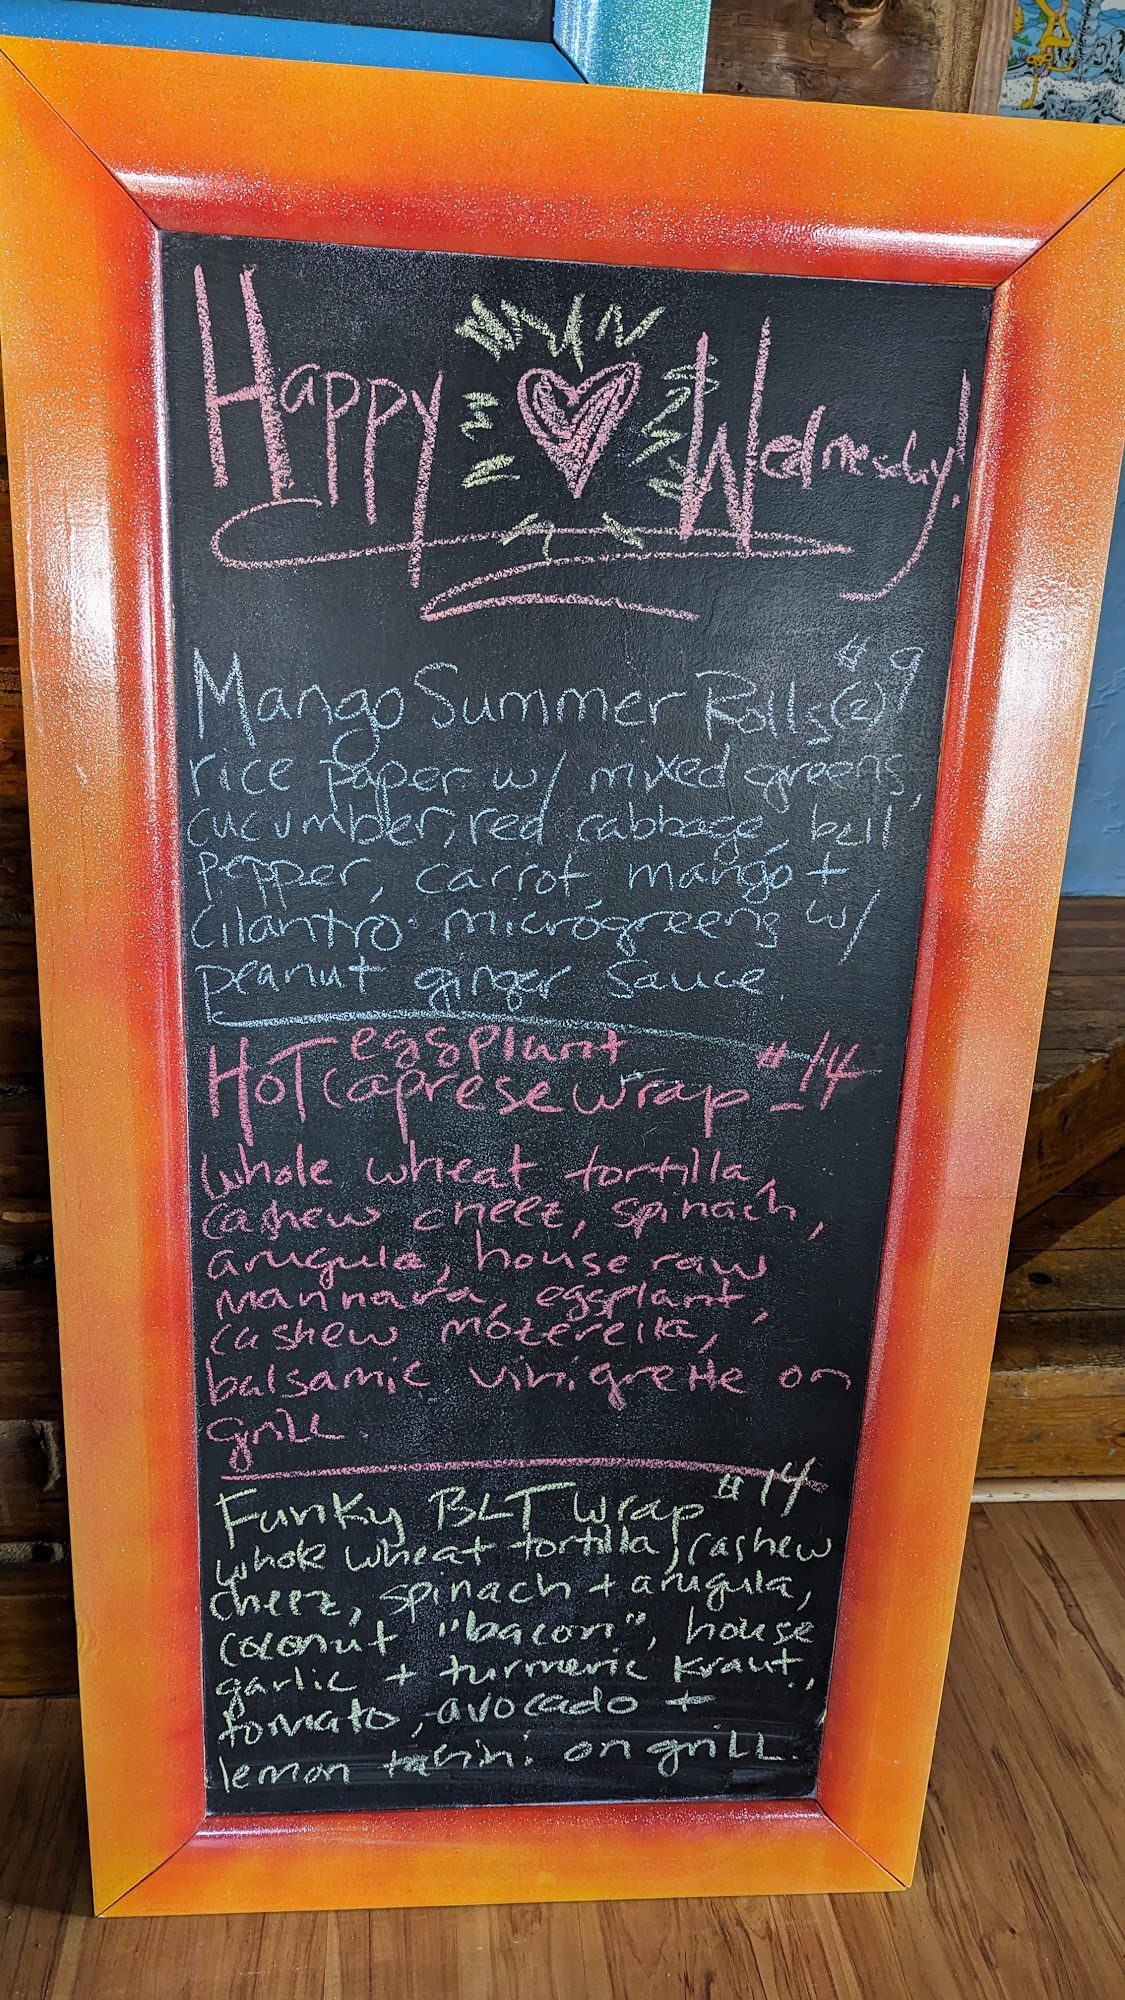 Happy Wednesday!
Mango Summer Rolls (2) $9
rice paper w/ mixed greens,
cucumber, red cabbage, bell
pepper, carrot, mango +
cilantro microgreens w/
peanut ginger sauce.
eggplant
HoT Caprese Wrap $14
whole wheat tortilla,
cashew cheez, spinach,
arugula, house raw
marinara, eggplant,
cashew mozerella,
balsamic vinigrette on
grill.
Funky BLT Wrap $14
whole wheat tortilla, cashew
cheez, spinach + arugula,
coconut "bacon", house
garlic + turmeric kraut,
tomato, avocado +
lemon tahini on grill.